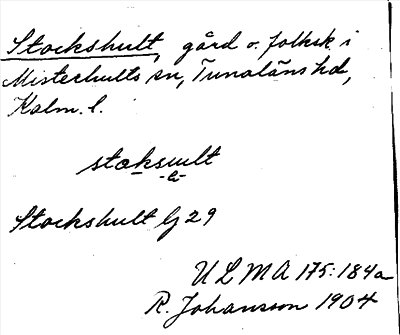 Stockshult, gård o. folksk. i
Misterhults sn, Tunaläns hd,
Kalm. l.
stoksult
Stockshult Lj 29
ULMA 175:184a
R. Johansson 1904